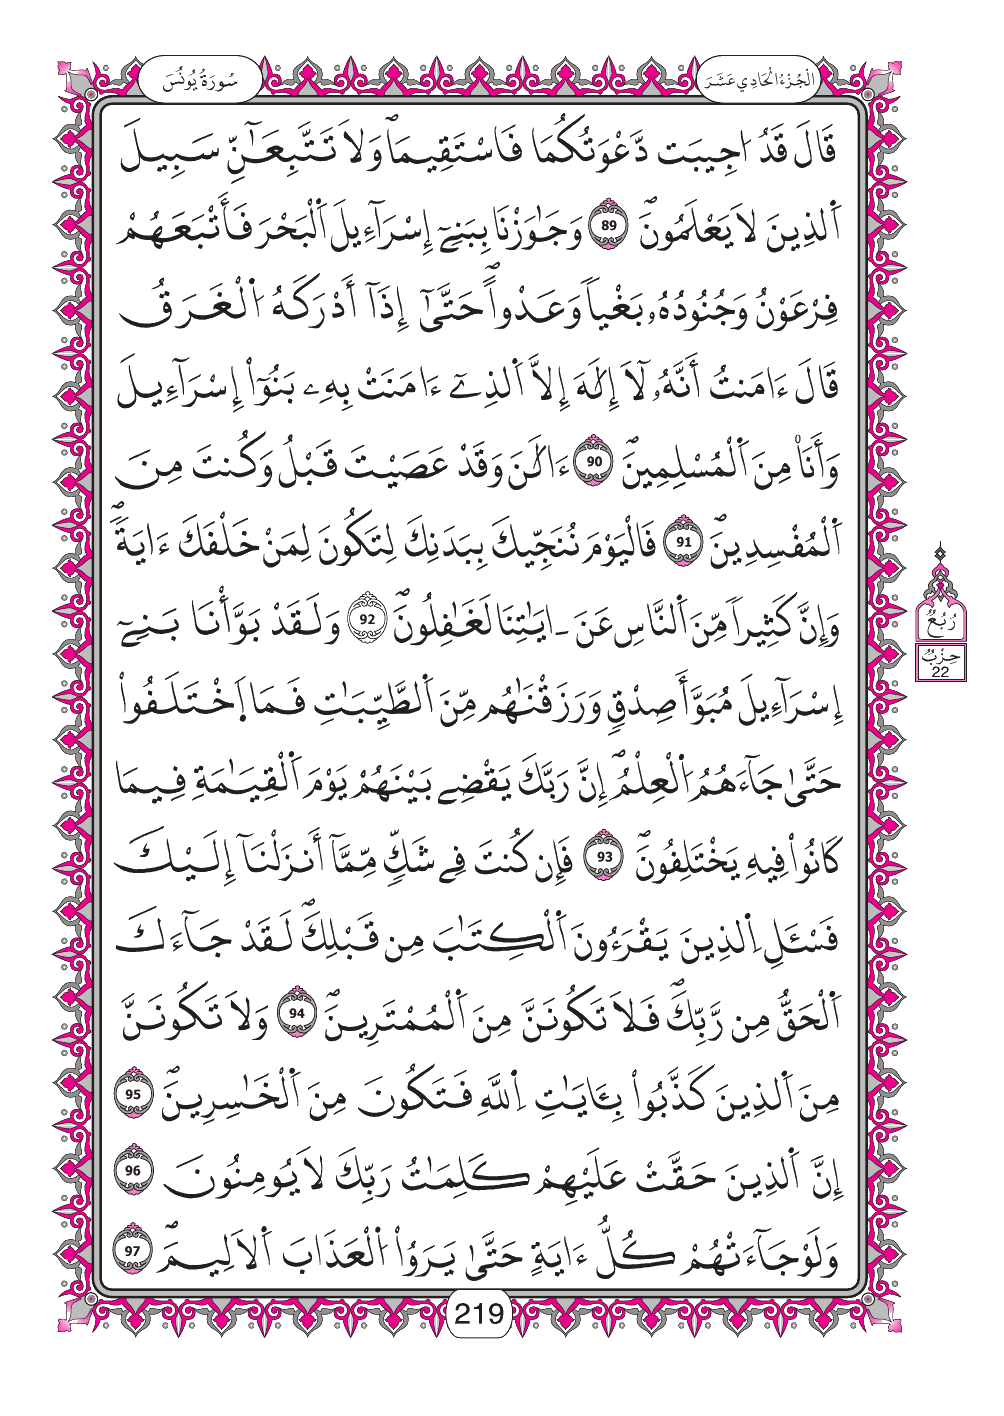 سُورَةُ يُونُسَ
الْجُزْءُ الْحَادِي عَشَرَ
قَالَ قَدُ ا۟جِيبَت دَّعْوَتُكُمَا فَاسْتَقِيمَاۖ وَلَا تَتَّبِعَٰٓنِّ سَبِيلَ
اَ۬لذِينَ لَا يَعْلَمُونَۖ 89 وَجَٰوَزْنَا بِبَنِےٓ إِسْرَآءِيلَ اَ۬لْبَحْرَ فَأَتْبَعَهُمْ
فِرْعَوْنُ وَجُنُودُهُۥ بَغْياٗ وَعَدْواًۖ حَتَّىٰٓ إِذَآ أَدْرَكَهُ اُ۬لْغَرَقُ
قَالَ ءَامَنتُ أَنَّهُۥ لَآ إِلَٰهَ إِلَّا اَ۬لذِےٓ ءَامَنَتْ بِهِۦ بَنُوٓاْ إِسْرَآءِيلَ
وَأَنَا۠ مِنَ اَ۬لْمُسْلِمِينَۖ 90 ءَآلَٰنَ وَقَدْ عَصَيْتَ قَبْلُ وَكُنتَ مِنَ
اَ۬لْمُفْسِدِينَۖ 91 فَالْيَوْمَ نُنَجِّيكَ بِبَدَنِكَ لِتَكُونَ لِمَنْ خَلْفَكَ ءَايَةٗۖ
وَإِنَّ كَثِيراٗ مِّنَ اَ۬لنَّاسِ عَنَ اٰيَٰتِنَا لَغَٰفِلُونَۖ 92 وَلَقَدْ بَوَّأْنَا بَنِےٓ
إِسْرَآءِيلَ مُبَوَّأَ صِدْقٖ وَرَزَقْنَٰهُم مِّنَ اَ۬لطَّيِّبَٰتِ فَمَا اَ۪خْتَلَفُواْ
حَتَّىٰ جَآءَهُمُ اُ۬لْعِلْمُۖ إِنَّ رَبَّكَ يَقْضِے بَيْنَهُمْ يَوْمَ اَ۬لْقِيَٰمَةِ فِيمَا
كَانُواْ فِيهِ يَخْتَلِفُونَۖ 93 فَإِن كُنتَ فِے شَكّٖ مِّمَّآ أَنزَلْنَآ إِلَيْكَ
فَسْـَٔلِ اِ۬لذِينَ يَقْرَءُونَ اَ۬لْكِتَٰبَ مِن قَبْلِكَۖ لَقَدْ جَآءَكَ
اَ۬لْحَقُّ مِن رَّبِّكَۖ فَلَا تَكُونَنَّ مِنَ اَ۬لْمُمْتَرِينَۖ 94 وَلَا تَكُونَنَّ
مِنَ اَ۬لذِينَ كَذَّبُواْ بِـَٔايَٰتِ اِ۬للَّهِ فَتَكُونَ مِنَ اَ۬لْخَٰسِرِينَۖ 95
إِنَّ اَ۬لذِينَ حَقَّتْ عَلَيْهِمْ كَلِمَٰتُ رَبِّكَ لَا يُومِنُونَ 96
وَلَوْ جَآءَتْهُمْ كُلُّ ءَايَةٍ حَتَّىٰ يَرَوُاْ اُ۬لْعَذَابَ اَ۬لَالِيمَۖ 97
رُبُعُ
حِزْبُ
22
219